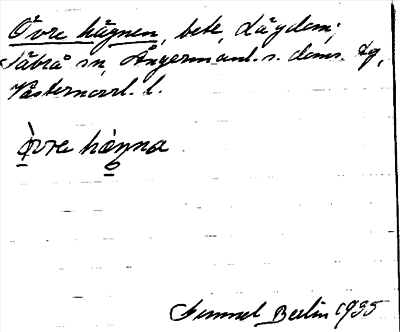 Övre hägnen, bete, Lägdom;
Säbrå sn, Ångermanl. s. doms. tg,
Västernorrl. l.
òvre hæŋna
Simmel Berlin 1935